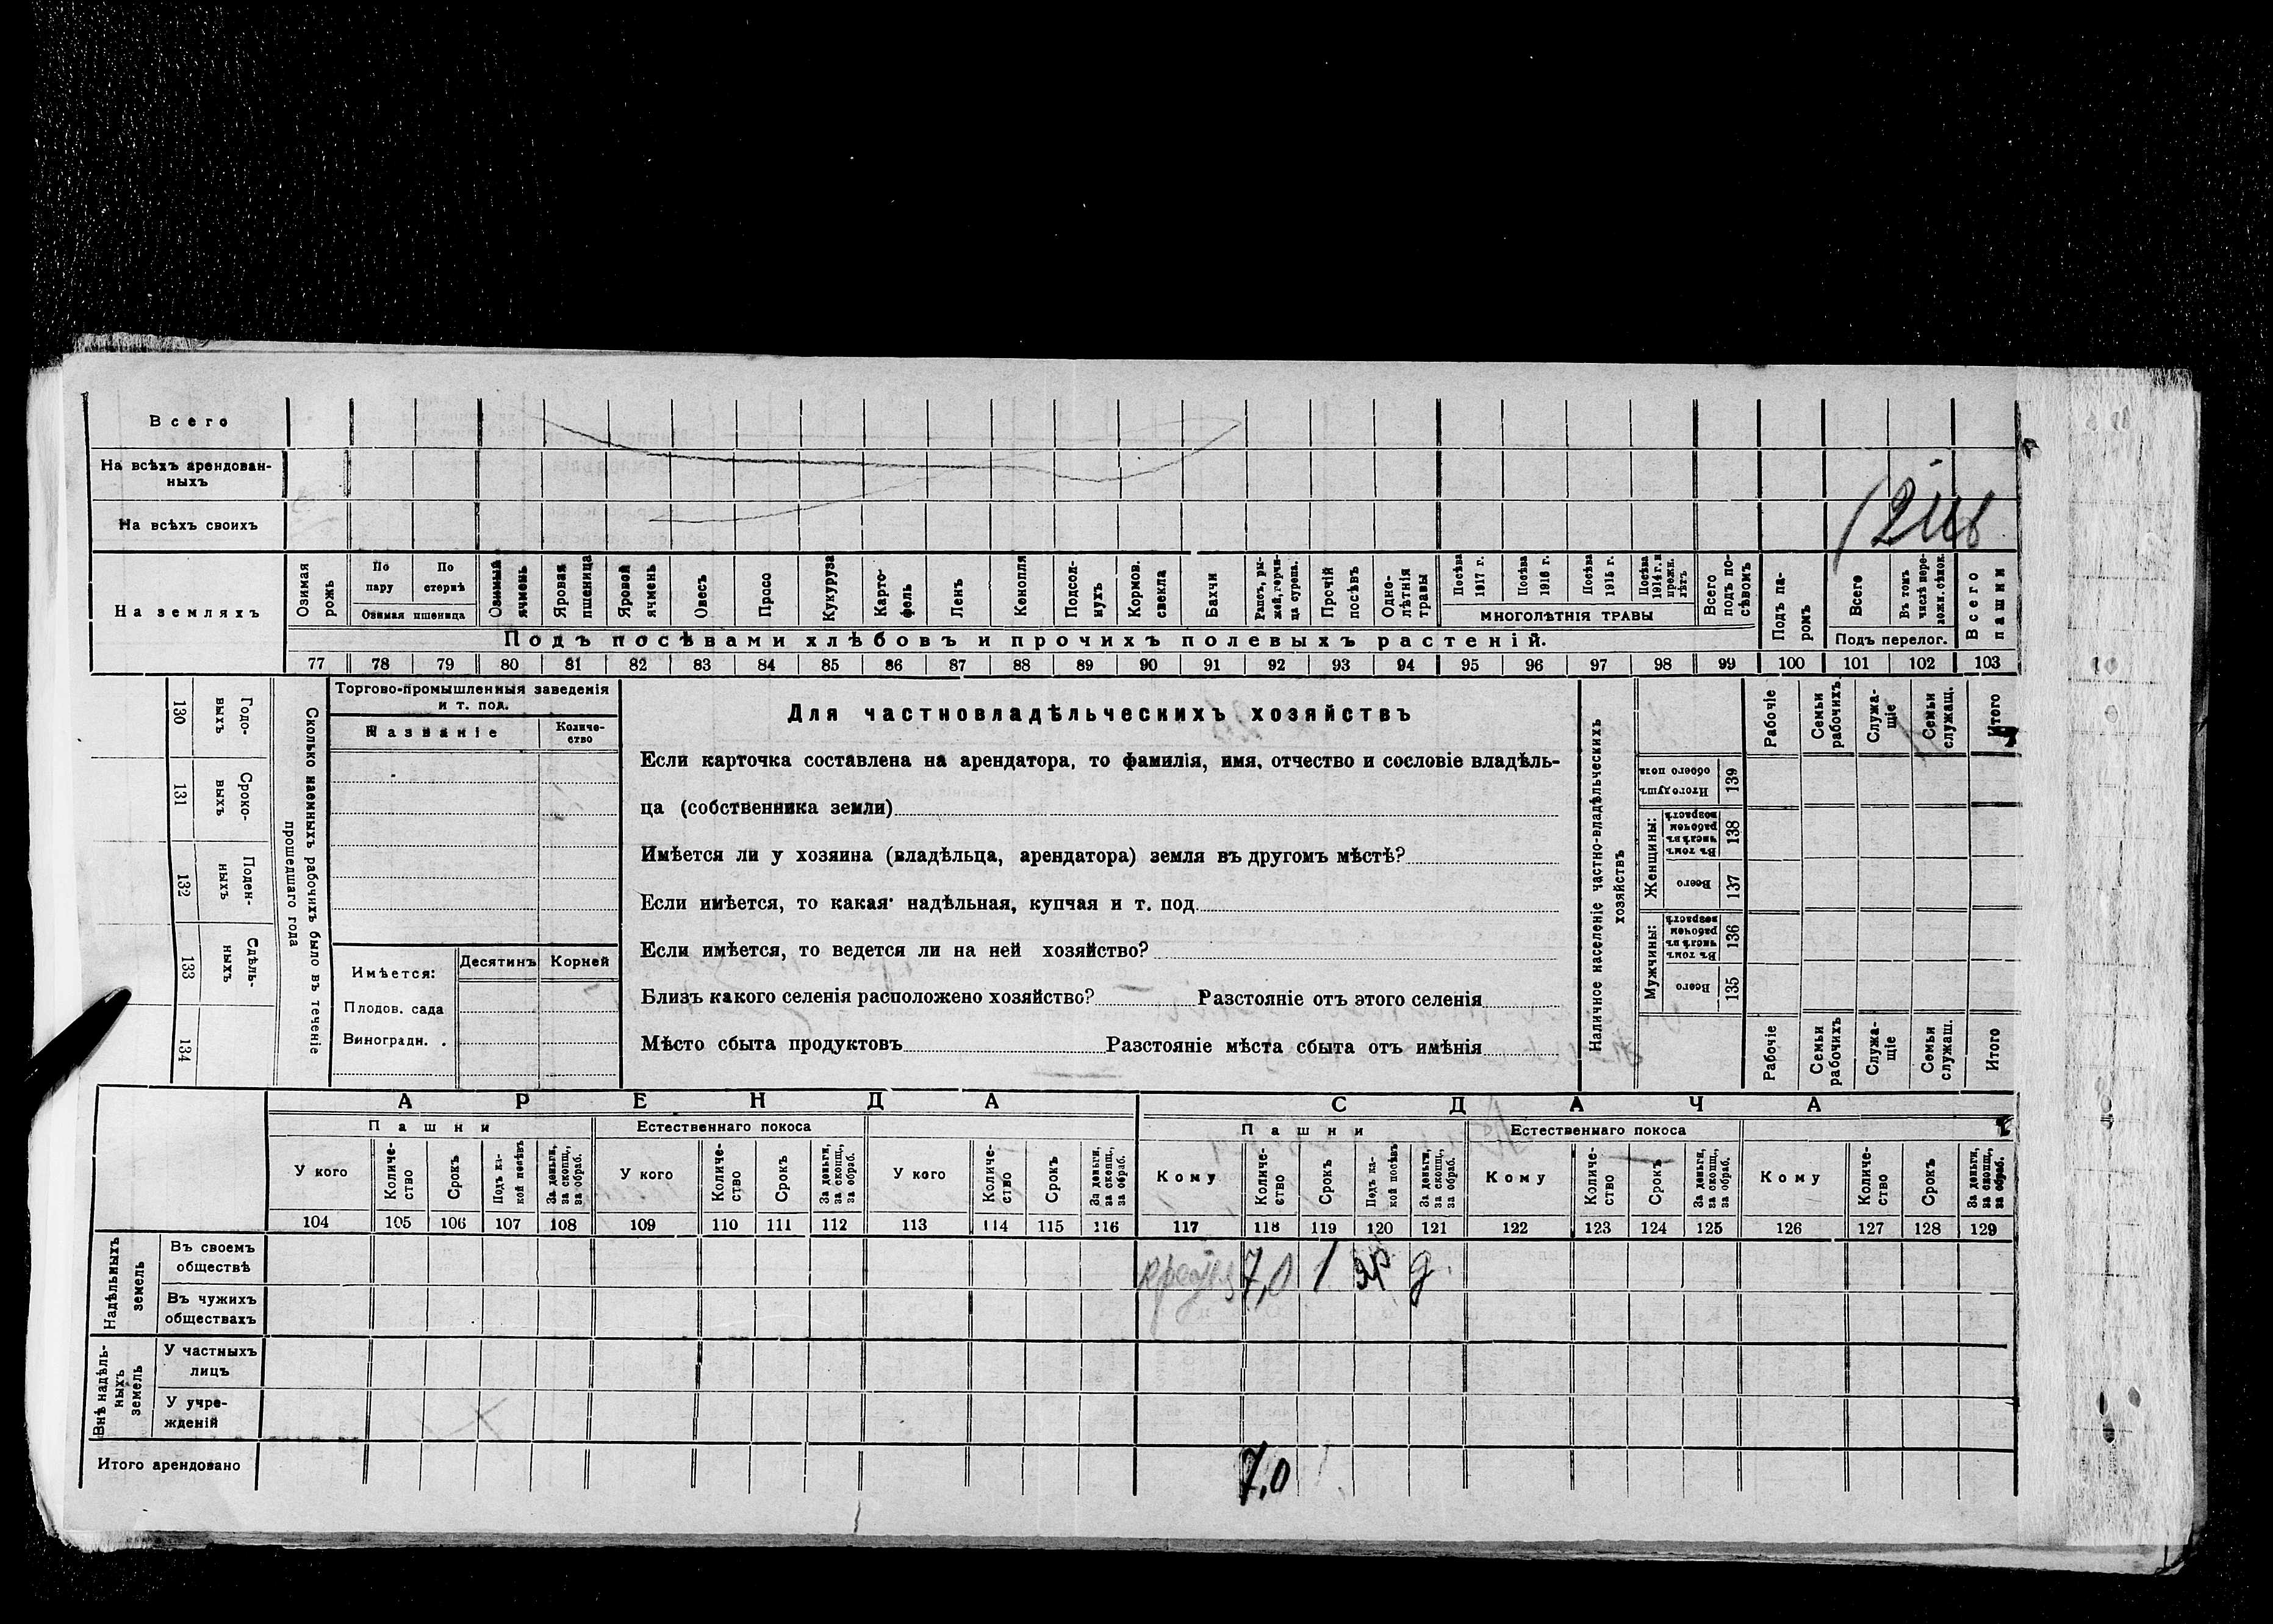 Всего
На всѣхъ арендован-
ныхъ
На всѣхъ своихъ
На земляхъ
Озимая рожь
По пару
По стернѣ
Озимая пшеница
Озимый ячмень
Яровая пшеница
Яровой ячмень
Овесъ
Просо
Кукуруза
Карто-
фель
Ленъ
Конопля
Подсол-
нухъ
Кормов. свекла
Бахчи
Рапсъ, ры-
жей, горчи-
ца сурепа.
Прочій посѣвъ
Одно-
лѣтнія травы
Посѣва 1917 г.
Посѣва 1916 г.
Посѣва 1915 г.
Посѣва 1914 г. и прежн. лѣтъ
МНОГОЛѢТНІЯ ТРАВЫ
Всего подъ по-
сѣвомъ
Подъ па-
ромъ
Всего
Въ томъ числѣ пере-
ложн. сѣнок.
Подъ перелог.
Всего пашни
Подъ посѣвами хлѣбовъ и прочихъ полевыхъ растеній.
77 78 79 80 81 82 83 84 85 86 87 88 89 90 91 92 93 94 95 96 97 98 99 100 101 102 103
130 Годо-
выхъ
131 Сроко-
выхъ
132 Поден-
ныхъ
133 Сдѣль-
ныхъ
134
Сколько наемныхъ рабочихъ было въ теченіе
прошедшаго года
Торгово-промышленныя заведенія
и т. под.
Названіе
Количе-
ство
Имѣется:
Десятинъ
Корней
Плодов. сада
Виноградн. .
Для частновладѣльческихъ хозяйствъ
Если карточка составлена на арендатора, то фамилія, имя, отчество и сословіе владѣль-
ца (собственника земли)
Имѣется ли у хозяина (владѣльца, арендатора) земля въ другомъ мѣстѣ?
Если имѣется, то какая: надѣльная, купчая и т. под
Если имѣется, то ведется ли на ней хозяйство?
Близъ какого селенія расположено хозяйство? Разстояніе отъ этого селенія
Мѣсто сбыта продуктовъ Разстояніе мѣста сбыта отъ имѣнія
Наличное населеніе частно-владѣльческихъ
хозяйствъ
Рабочіе
Семьи рабочихъ.
Служа-
щіе
Семьи служащ.
Итого
Итого душъ обоего пола 139
Женщины:
Въ томъ числѣ въ рабочемъ возрастѣ 138
Всего 137
Мужчины:
Въ томъ числѣ въ рабочемъ возрастѣ 136
Всего 135
Рабочіе
Семьи рабочихъ
Служа-
щіе
Семьи служащ.
Итого
АРЕНДА
СДАЧА
Пашни
Естественнаго покоса
Пашни
Естественнаго покоса
У кого
Количе-
ство
Срокъ
Подъ ка-
кой посѣвъ
За деньги, за скопщ., за обраб.
У кого
Количе-
ство
Срокъ
За деньги, за скопщ., за обраб.
У кого
Количе-
ство
Срокъ
За деньги, за скопщ., за обраб.
Кому
Количе-
ство
Срокъ
Подъ ка-
кой посѣвъ
За деньги, за скопщ., за обраб.
Кому
Количе-
ство
Срокъ
За деньги, за скопщ., за обраб.
Кому
Количе-
ство
Срокъ
За деньги, за скопщ., за обраб.
104 105 106 107 108 109 110 111 112 113 114 115 116 117 118 119 120 121 122 123 124 125 126 127 128 129
Надѣльныхъ земель
Въ своемъ
обществѣ
7,0 1 яр д.
Въ чужихъ
обществахъ
Внѣ надѣль-
ныхъ земель
У частныхъ
лицъ
У учре-
жденій
Итого арендовано
7,0